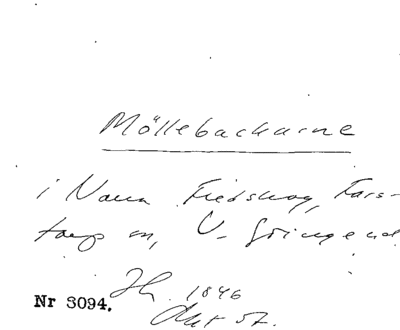 Möllebackarne
i Norra Fredskog, Fars-
torp sn, V. Göinge hd
Nr 3094.
1846
Akt 57.